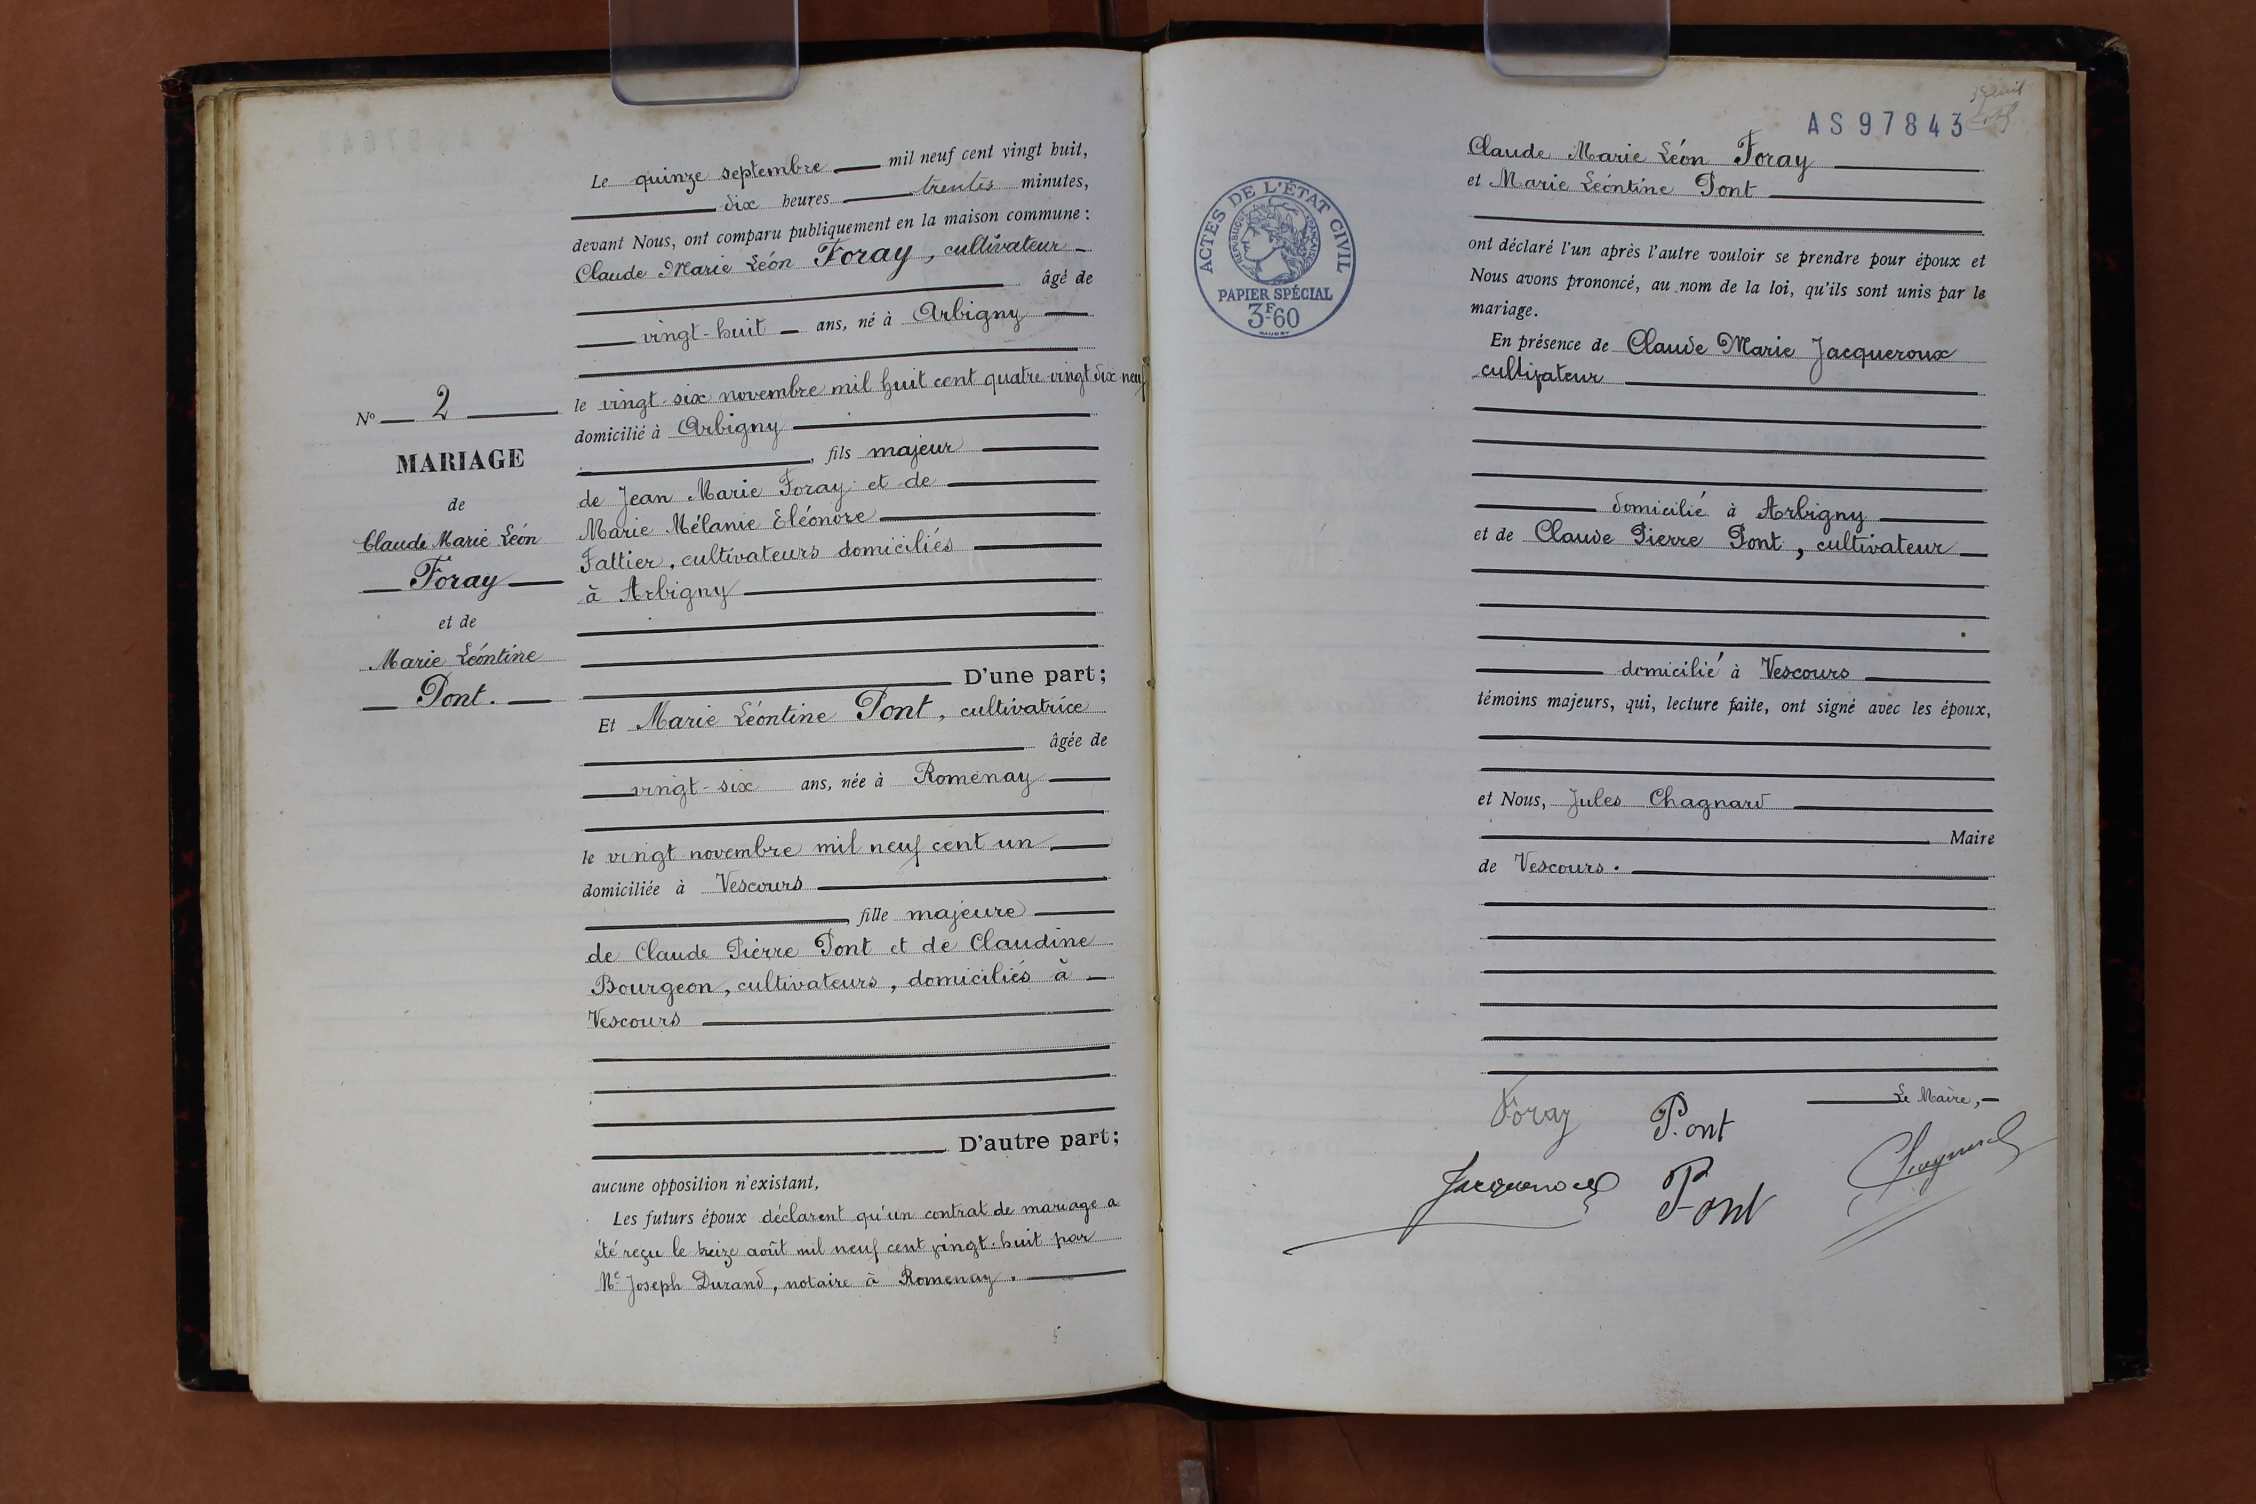 Le quinze septembre mil neuf cent vingt huit,
dix heures trentes minutes,
devant Nous, ont comparu publiquement en la maison commune :
Claude Marie Léon Foray, cultivateur
âgé de
vingt-huit ans, né à Arbigny
le vingt-six novembre mil huit cent quatre-vingt dix neuf
domicilié à Arbigny
, fils majeur
de Jean Marie Foray et de
Marie Mélanie Eléonore
Fattier, cultivateurs domiciliés
à Arbigny
D'une part;
Et Marie Léontine Pont, cultivatrice
âgée de
vingt-six ans, née à Romenay
le vingt novembre mil neuf cent un
domiciliée à Vescours
, fille majeure
de Claude Pierre Pont et de Claudine
Bourgeon, cultivateurs, domiciliés à
Vescours
D'autre part;
aucune opposition n'existant,
Les futurs époux déclarent qu'un contrat de mariage a
été reçu le treize août mil neuf cent vingt-huit par
Me Joseph Durand, notaire à Romenay.
No 2
MARIAGE
de
Claude Marie Léon
Foray
et de
Marie Léontine
Pont.
AS97843
ACTES DE L'ÉTAT CIVIL
RÉPUBLIQUE FRANÇAISE
PAPIER SPÉCIAL
3F60
Claude Marie Léon Foray
et Marie Léontine Pont
ont déclaré l'un après l'autre vouloir se prendre pour époux et
Nous avons prononcé, au nom de la loi, qu'ils sont unis par le
mariage.
En présence de Claude Marie Jacqueroux
cultivateur
domicilié à Arbigny
et de Claude Pierre Pont, cultivateur
domicilié à Vescours
témoins majeurs, qui, lecture faite, ont signé avec les époux,
et Nous, Jules Chagnard
Maire
de Vescours.
Le Maire,
Foray Pont
Jacqueroux Pont Chagnard